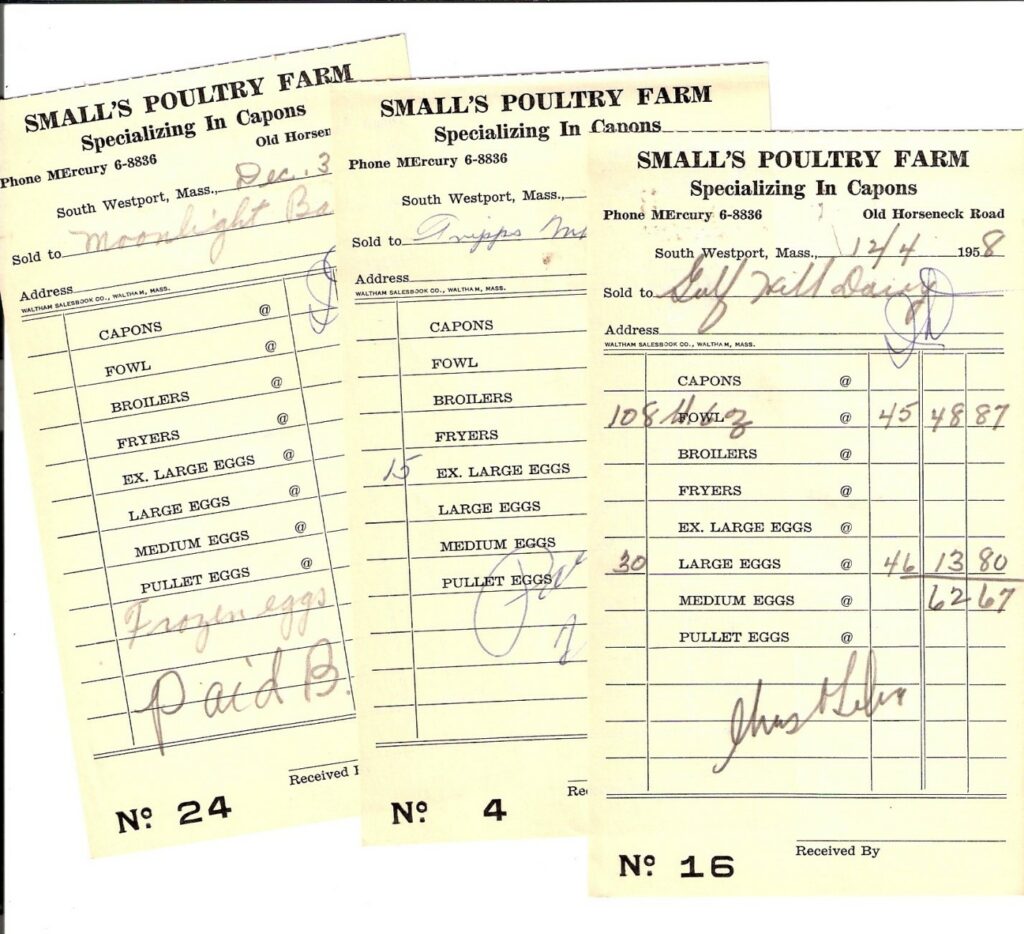 SMALL'S POULTRY FARM
Specializing In Capons
Phone MErcury 6-8836 Old Horsen
South Westport, Mass., Dec. 3
Sold to Moonlight Ba
Address
WALTHAM SALESBOOK CO., WALTHAM, MASS.
CAPONS @
FOWL @
BROILERS @
FRYERS @
EX. LARGE EGGS @
LARGE EGGS @
MEDIUM EGGS @
PULLET EGGS @
Frozen eggs
Paid B.
Received
No. 24
SMALL'S POULTRY FARM
Specializing In Capons
Phone MErcury 6-8836
South Westport, Mass.,
Sold to Tripps
Address
WALTHAM SALESBOOK CO., WALTHAM, MASS.
CAPONS
FOWL
BROILERS
FRYERS
15 EX. LARGE EGGS
LARGE EGGS
MEDIUM EGGS
PULLET EGGS
Re
No. 4
SMALL'S POULTRY FARM
Specializing In Capons
Phone MErcury 6-8836 Old Horseneck Road
South Westport, Mass., 12/4 1958
Sold to Gulf Hill Dairy
Address
WALTHAM SALESBOOK CO., WALTHAM, MASS.
CAPONS @
108 FOWL @ 45 48 87
BROILERS @
FRYERS @
EX. LARGE EGGS @
30 LARGE EGGS @ 46 13 80
MEDIUM EGGS @ 62 67
PULLET EGGS @
Received By
No. 16